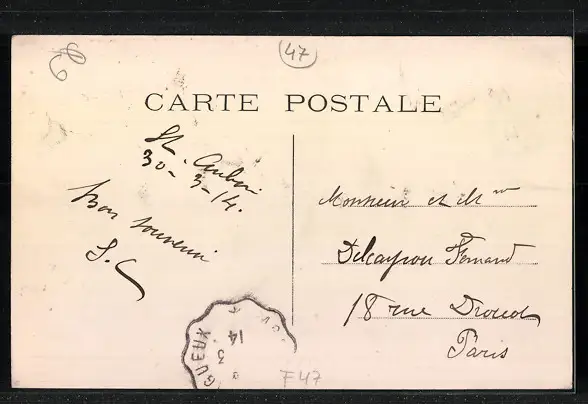 47
CARTE POSTALE
St. Aubin
30-3-14.
Bon souvenir
S. C
Monsieur et Mme
Delcayrou Fernand
18 rue Drouot
Paris
GUEUX
14
3
F47